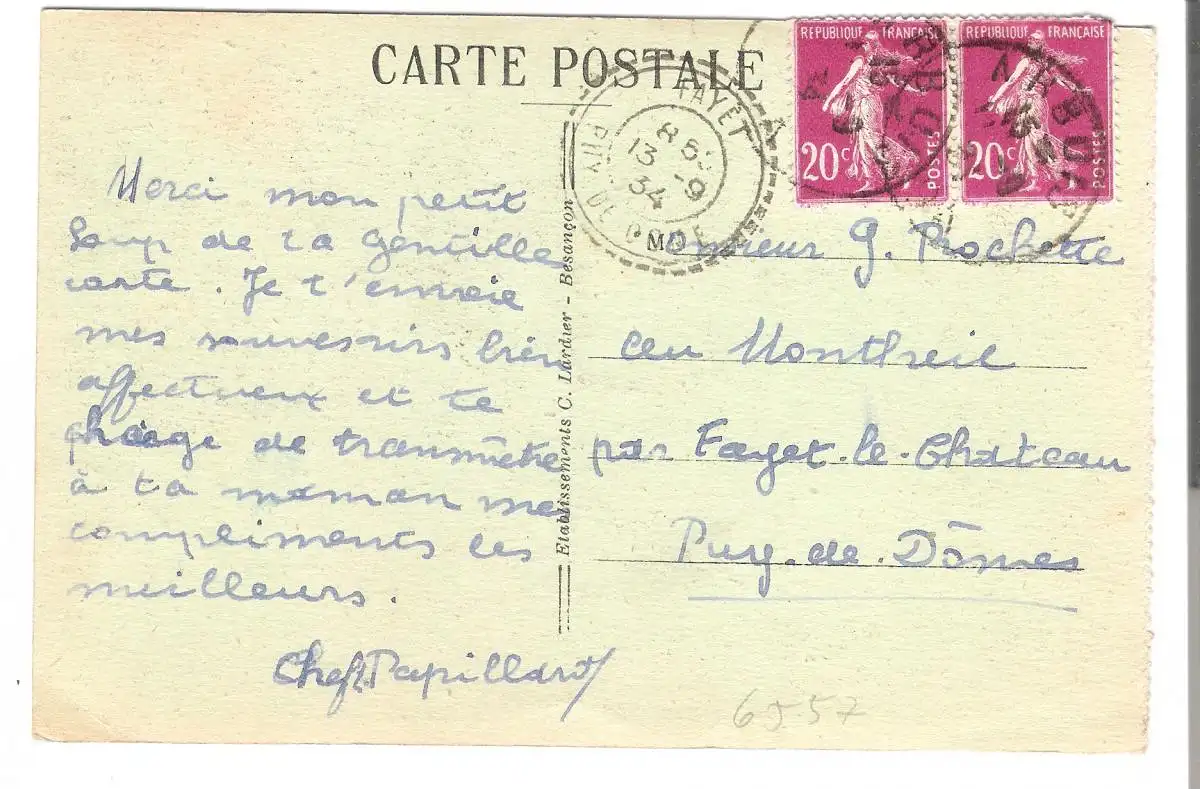 CARTE POSTALE
REPUBLIQUE FRANÇAISE
20c POSTES
REPUBLIQUE FRANÇAISE
20c POSTES
FAYET
8 13 -9 34
PUY DE DOME
Merci mon petit
Loup de ta gentille
carte. Je t'envoie
mes souvenirs bien
affectueux et te
charge de transmettre
à ta maman mes
compliments les
meilleurs.
Chef Papillard
Etablissements C. Lardier - Besançon
Monsieur G. Rochette
au Montheil
par Fayet-le-Chateau
Puy-de-Dômes
6557